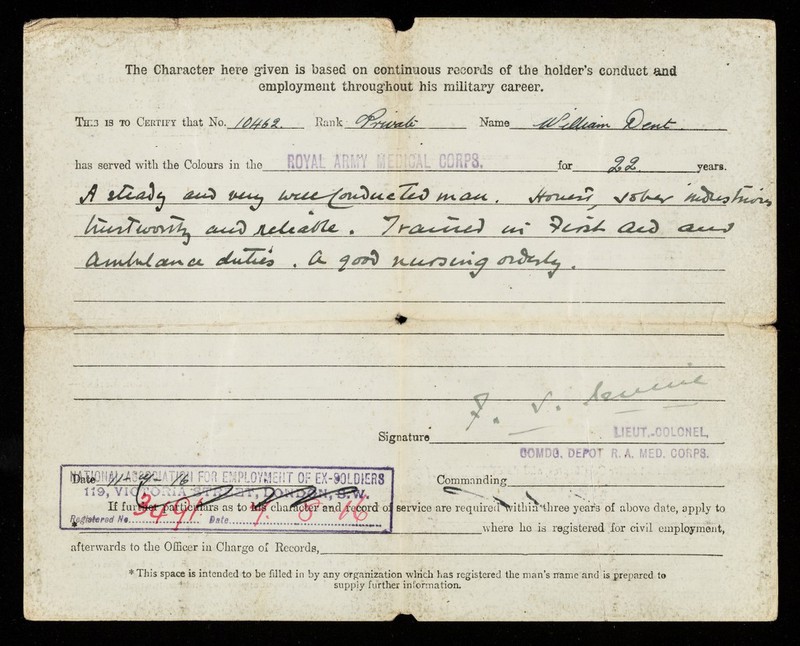 The Character here given is based on continuous records of the holder's conduct and
employment throughout his military career.
THIS IS TO CERTIFY that No. 10462. Rank Private Name William Dent.
has served with the Colours in the ROYAL ARMY MEDICAL CORPS. for 22 years.
A steady and very well conducted man. Honest, sober industrious
trustworthy and reliable. Trained in First Aid and
Ambulance duties. A good nursing orderly.
Signature F. S.
LIEUT.-COLONEL,
COMDG. DEPOT R. A. MED. CORPS.
NATIONAL ASSOCIATION FOR EMPLOYMENT OF EX-SOLDIERS
Date 16 Commanding
119, VICTORIA STREET, LONDON, S.W.
If further particulars as to his character and record of service are required within three years of above date, apply to
Registered No. 3491 Date 9 8 16
* where he is registered for civil employment,
afterwards to the Officer in Charge of Records,
* This space is intended to be filled in by any organization which has registered the man's name and is prepared to
supply further information.